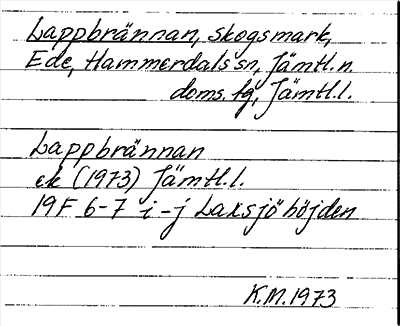 Lappbrännan, skogsmark,
Ede, Hammerdals sn, Jämtl. n.
doms. tg, Jämtl. l.
Lappbrännan
ek (1973) Jämtl. l.
19F 6-7 i-j Laxsjöhöjden
K.M. 1973